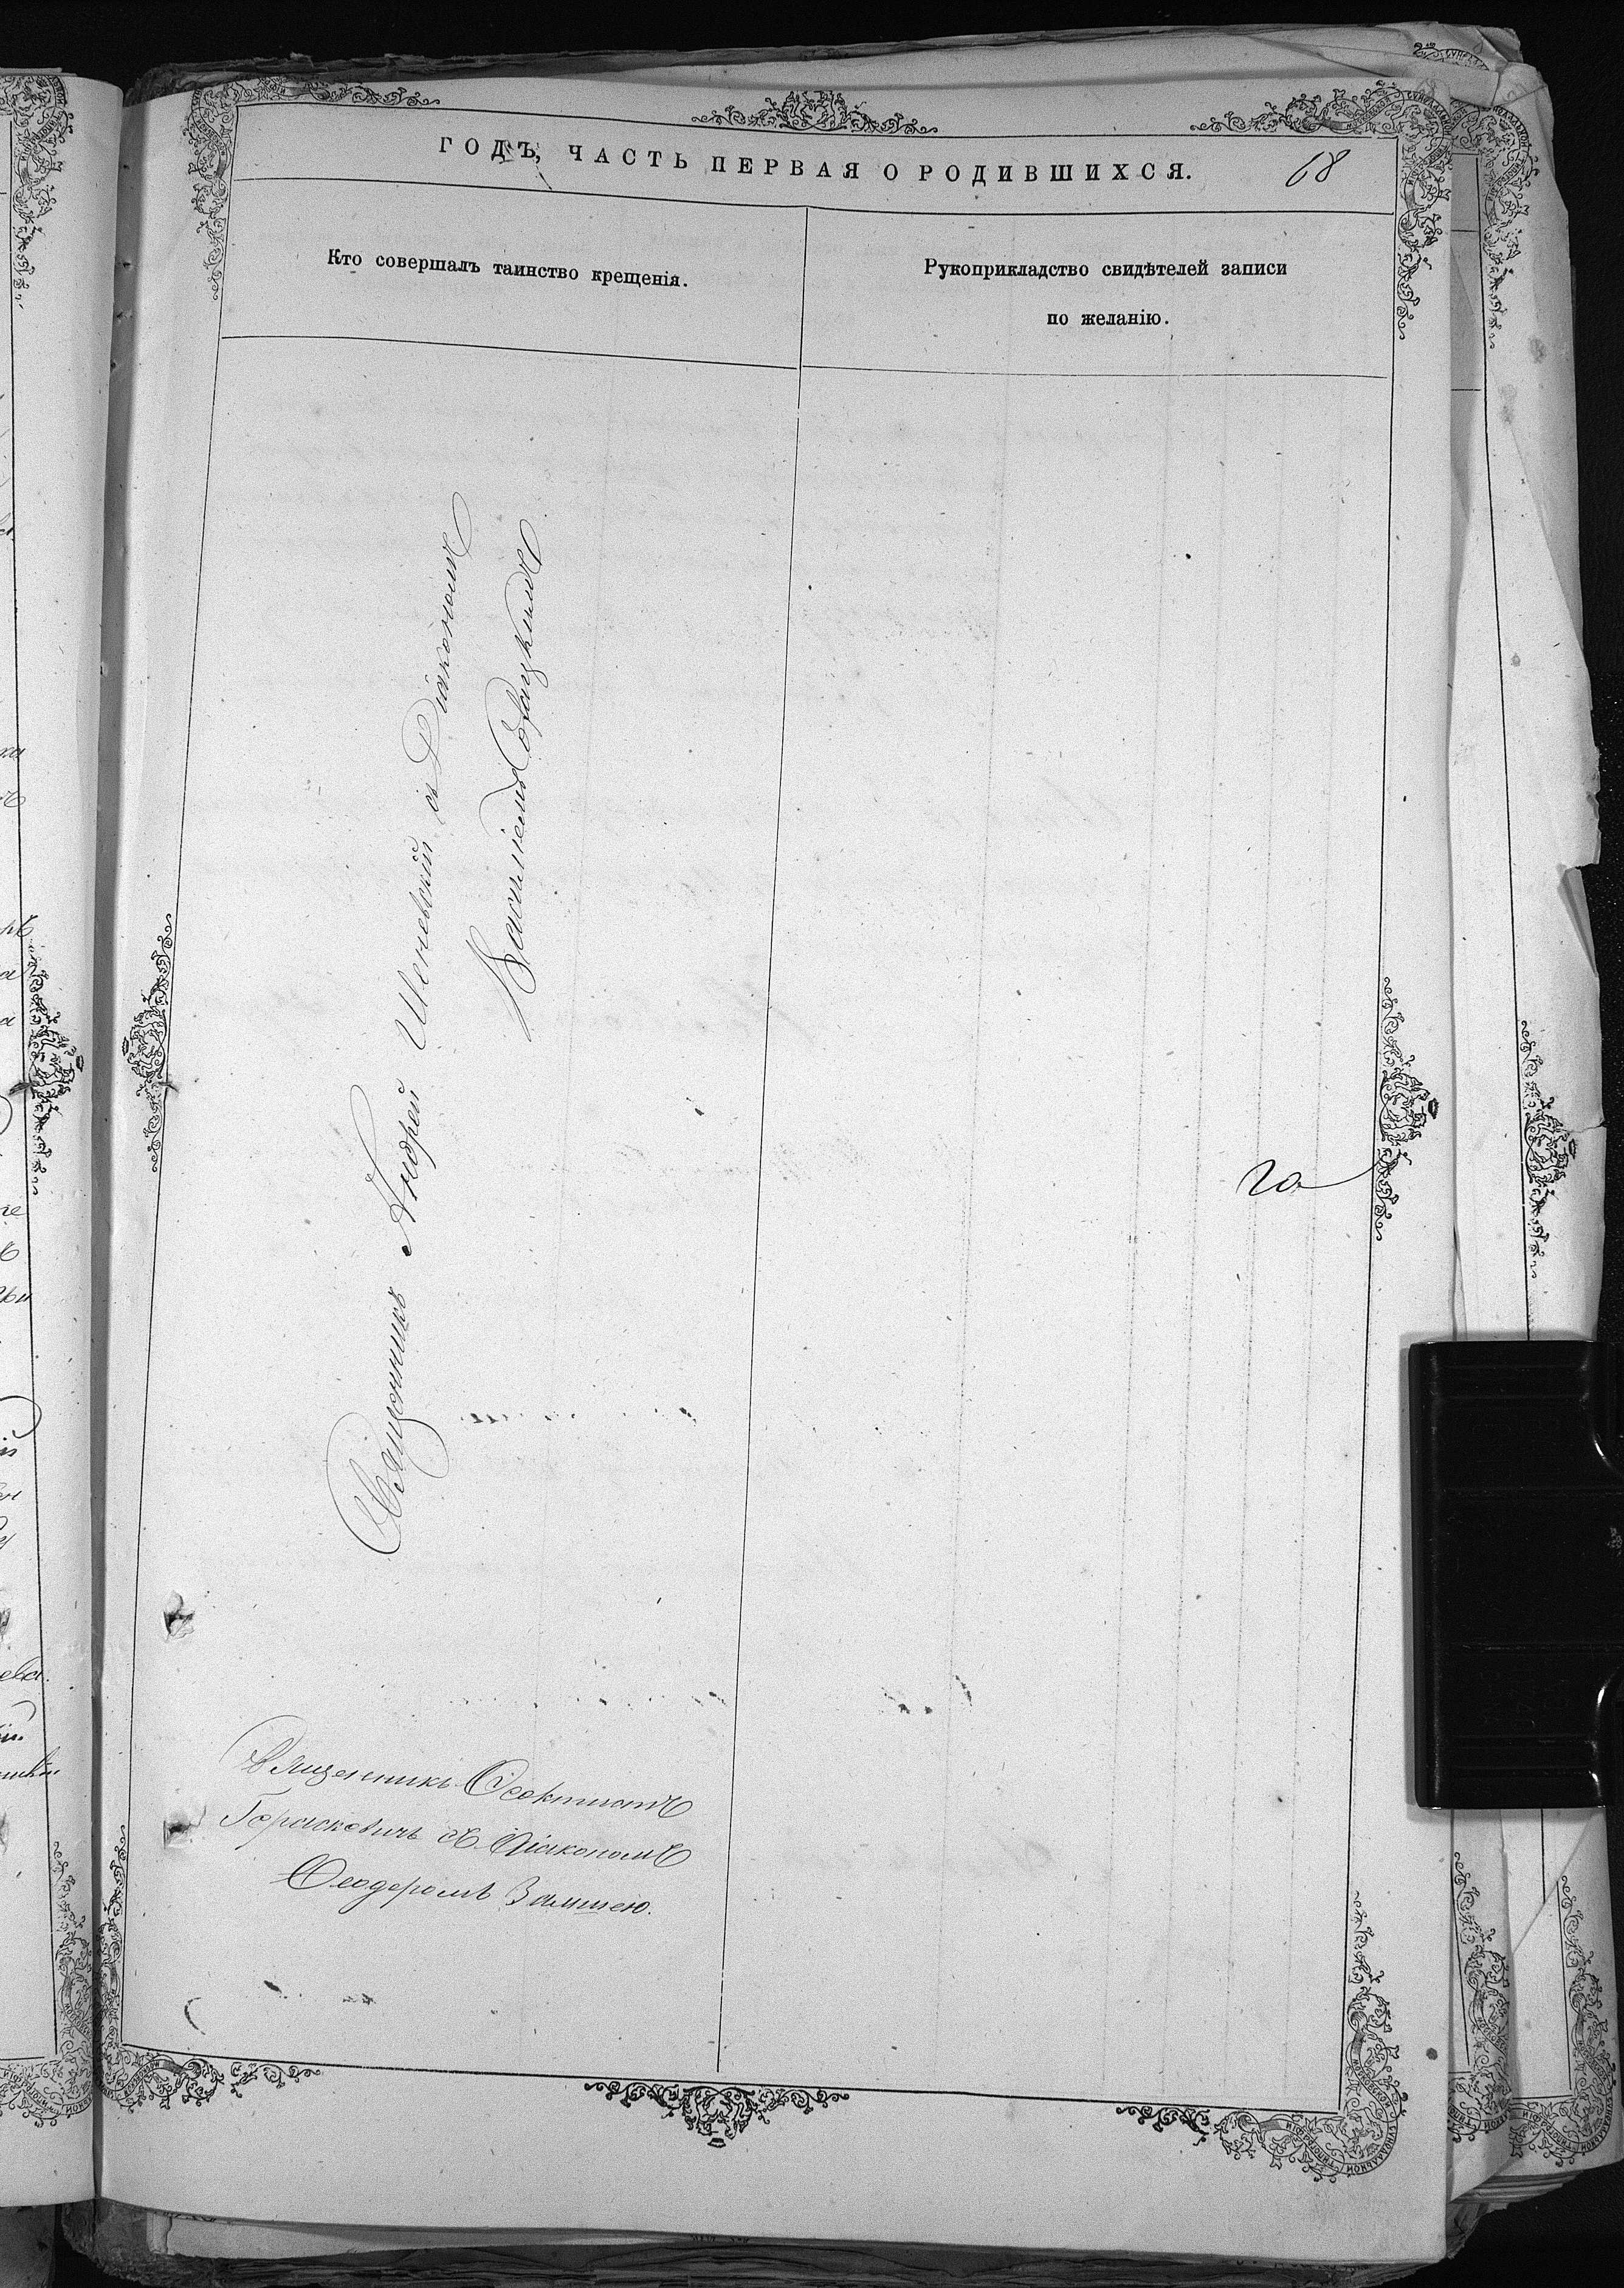 ГОДЪ, ЧАСТЬ ПЕРВАЯ О РОДИВШИХСЯ.
68
Кто совершалъ таинство крещенія.
Рукоприкладство свидѣтелей записи
по желанію.
Священникъ Андрей съ Діакономъ
Василіемъ
го
Священникъ Ѳеоктистъ
Гораковичъ съ Діакономъ
Ѳеодоромъ